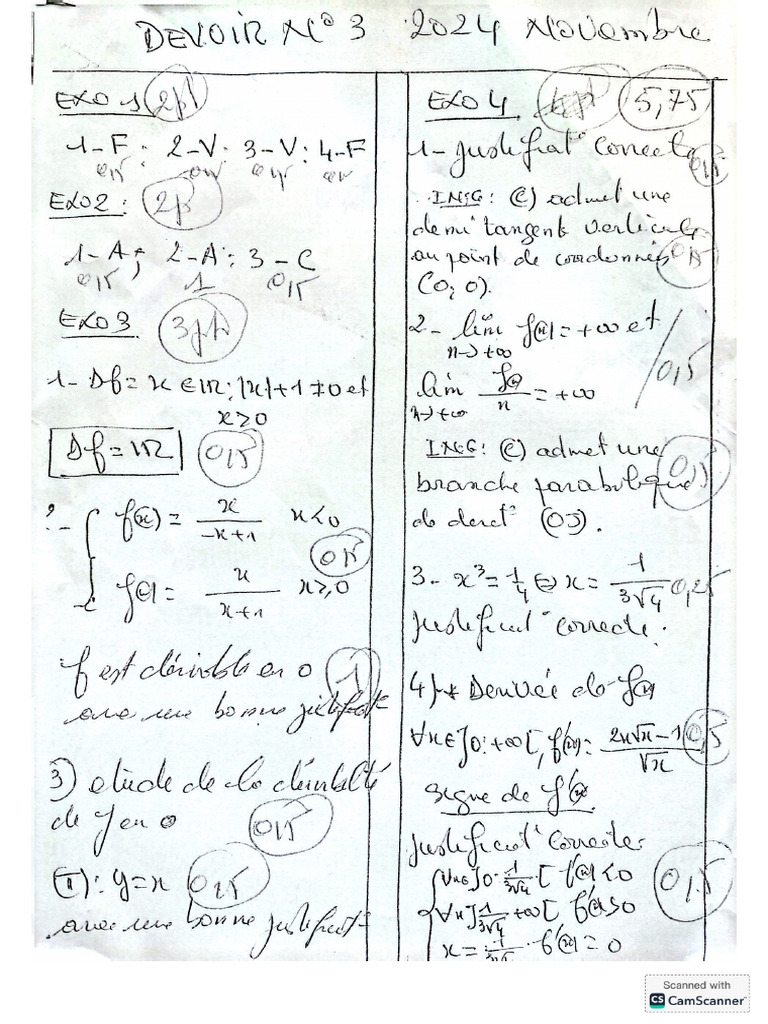 DEVOIR N° 3 2024 Novembre
EXO 1 2pt
1-F ; 2-V ; 3-V ; 4-F
0,5 0,5 0,5 0,5
EXO2 : 2p
1-A ; 2-A ; 3-C
0,5 1 0,5
EXO3 3pt
1- Df = x ∈ IR ; |x|+1 ≠ 0 et
x ≥ 0
Df = IR 0,5
2- { f(x) = x/(-x+1) x<0
0,5
f(x) = x/(x+1) x≥0
f est dérivable en 0 1
avec une bonne justificat°
3) etude de la dérivabilité
de f en 0 0,5
(T) : y = x 0,5
avec une bonne justificat°
EXO 4 5,75
1- Justificat° correcte 0,5
ING : (C) admet une
demi tangente verticale
au point de coordonnées 0,5
(0 ; 0).
2- lim x→+∞ f(x) = +∞ et
lim x→+∞ f(x)/x = +∞ 0,5
ING : (C) admet une
branche parabolique 0,5
de direct° (OJ).
3- x³ = 1/4 ⇔ x = 1/3√4 0,25
Justificat° correcte.
4) * Derivée de f(x)
∀x∈]0 ; +∞[, f'(x) = (2x√x - 1)/√x 0,5
Signe de f'(x)
Justificat° correcte
{ ∀x∈]0 ; 1/3√4[ f'(x)<0
∀x∈]1/3√4 ; +∞[ f'(x)>0 0,5
x = 1/3√4 f'(x) = 0
Scanned with
CS CamScanner